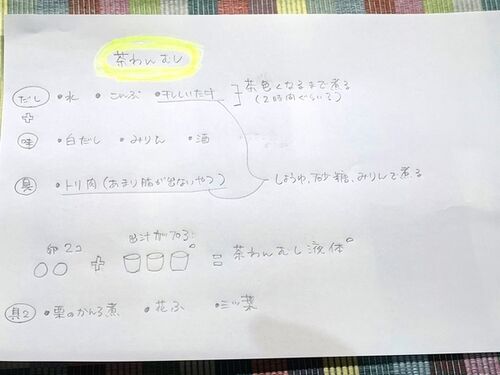 茶わんむし
だし ・水 ・こんぶ ・干ししいたけ ] 茶色くなるまで煮る
(2時間ぐらい?)
+
味 ・白だし ・みりん ・酒
具 ・トリ肉(あまり脂が出ないやつ) しょうゆ、砂糖、みりんで煮る
卵2コ + 出汁がプロ = 茶わんむし液体。
具2 ・栗のかんろ煮 ・花ふ ・三ッ葉